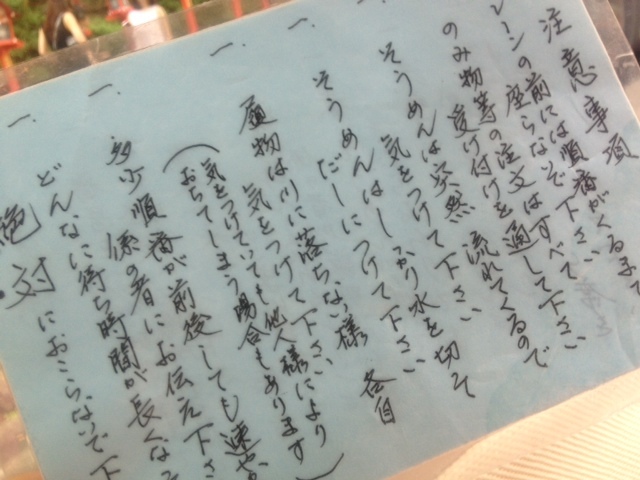 注意事項
一 レーンの前には順番がくるまで
座らないで下さい
一 のみ物等の注文はすべて
受け付けを通して下さい
一 そうめんは突然流れてくるので
気をつけて下さい
一 そうめんはしっかり水を切って
だしにつけて下さい
一 履物は川に落ちない様 各自
気をつけて下さい
(気をつけていても他人様により
おちてしまう場合もあります)
一 多少順番が前後しても速やか
係の者にお伝え下さ
一 どんなに待ち時間が長くな
絶対におこらないで下